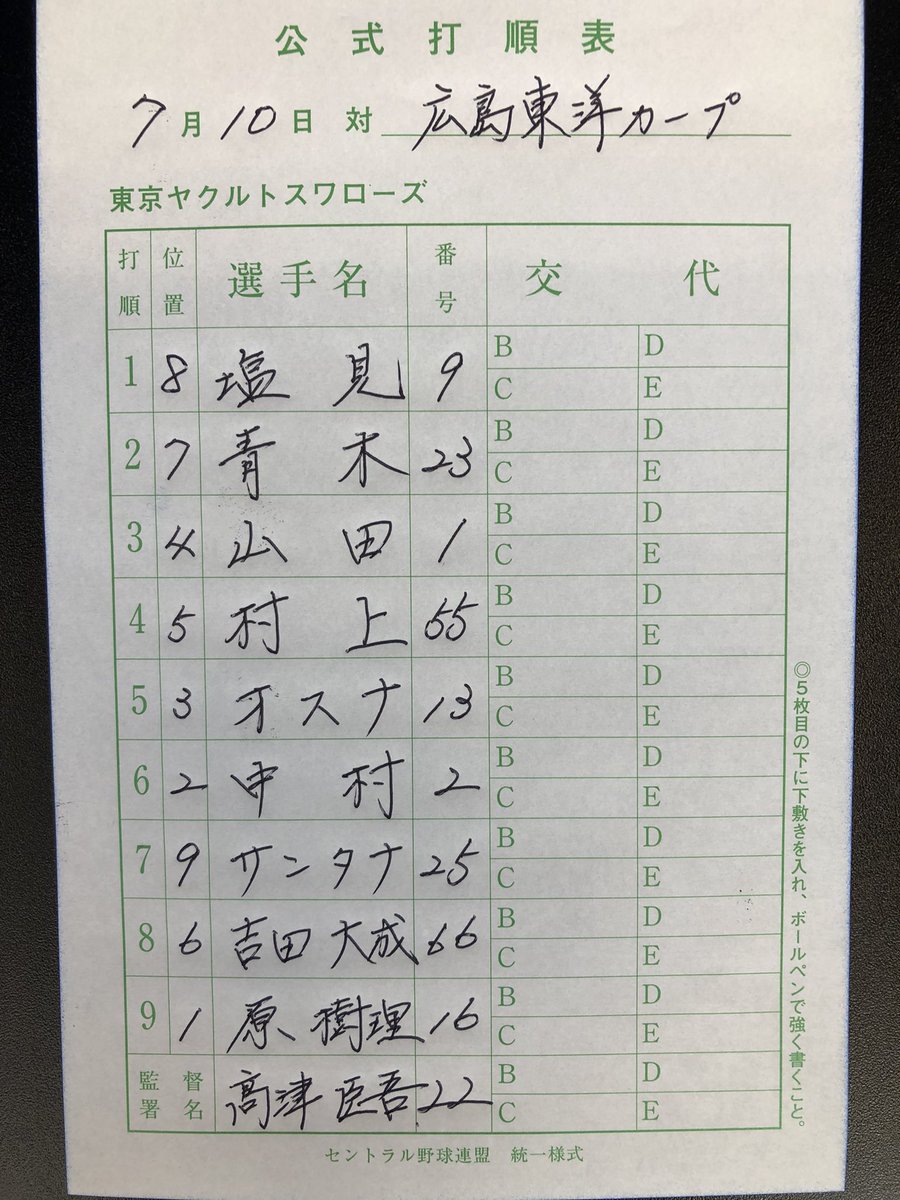 公式打順表
7月10日 対 広島東洋カープ
東京ヤクルトスワローズ
打順 位置 選手名 番号 交代
1 8 塩見 9 B D C E
2 7 青木 23 B D C E
3 4 山田 1 B D C E
4 5 村上 55 B D C E
5 3 オスナ 13 B D C E
6 2 中村 2 B D C E
7 9 サンタナ 25 B D C E
8 6 吉田大成 66 B D C E
9 1 原樹理 16 B D C E
監督署名 高津臣吾 22 B D C E
◎5枚目の下に下敷きを入れ、ボールペンで強く書くこと。
セントラル野球連盟 統一様式